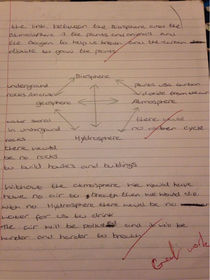 the link between the Biosphere and the
Atmosphere is the plants and animals and
the oxygen to help us and the carbon
dioxide to grow the plants.
Biosphere
underground
rocks
plants use carbon
dioxide from the air
geosphere
Atmosphere
water stored
in underground
rocks
there would
no carbon cycle
Hydrosphere
there would
be no rocks
to build houses and buildings
Without the atmosphere, we would have
have no air to breath then we would die
with no Hydrosphere there would be no
water for us to drink
The air will be polluted and it will be
harder and harder to breath
Good work